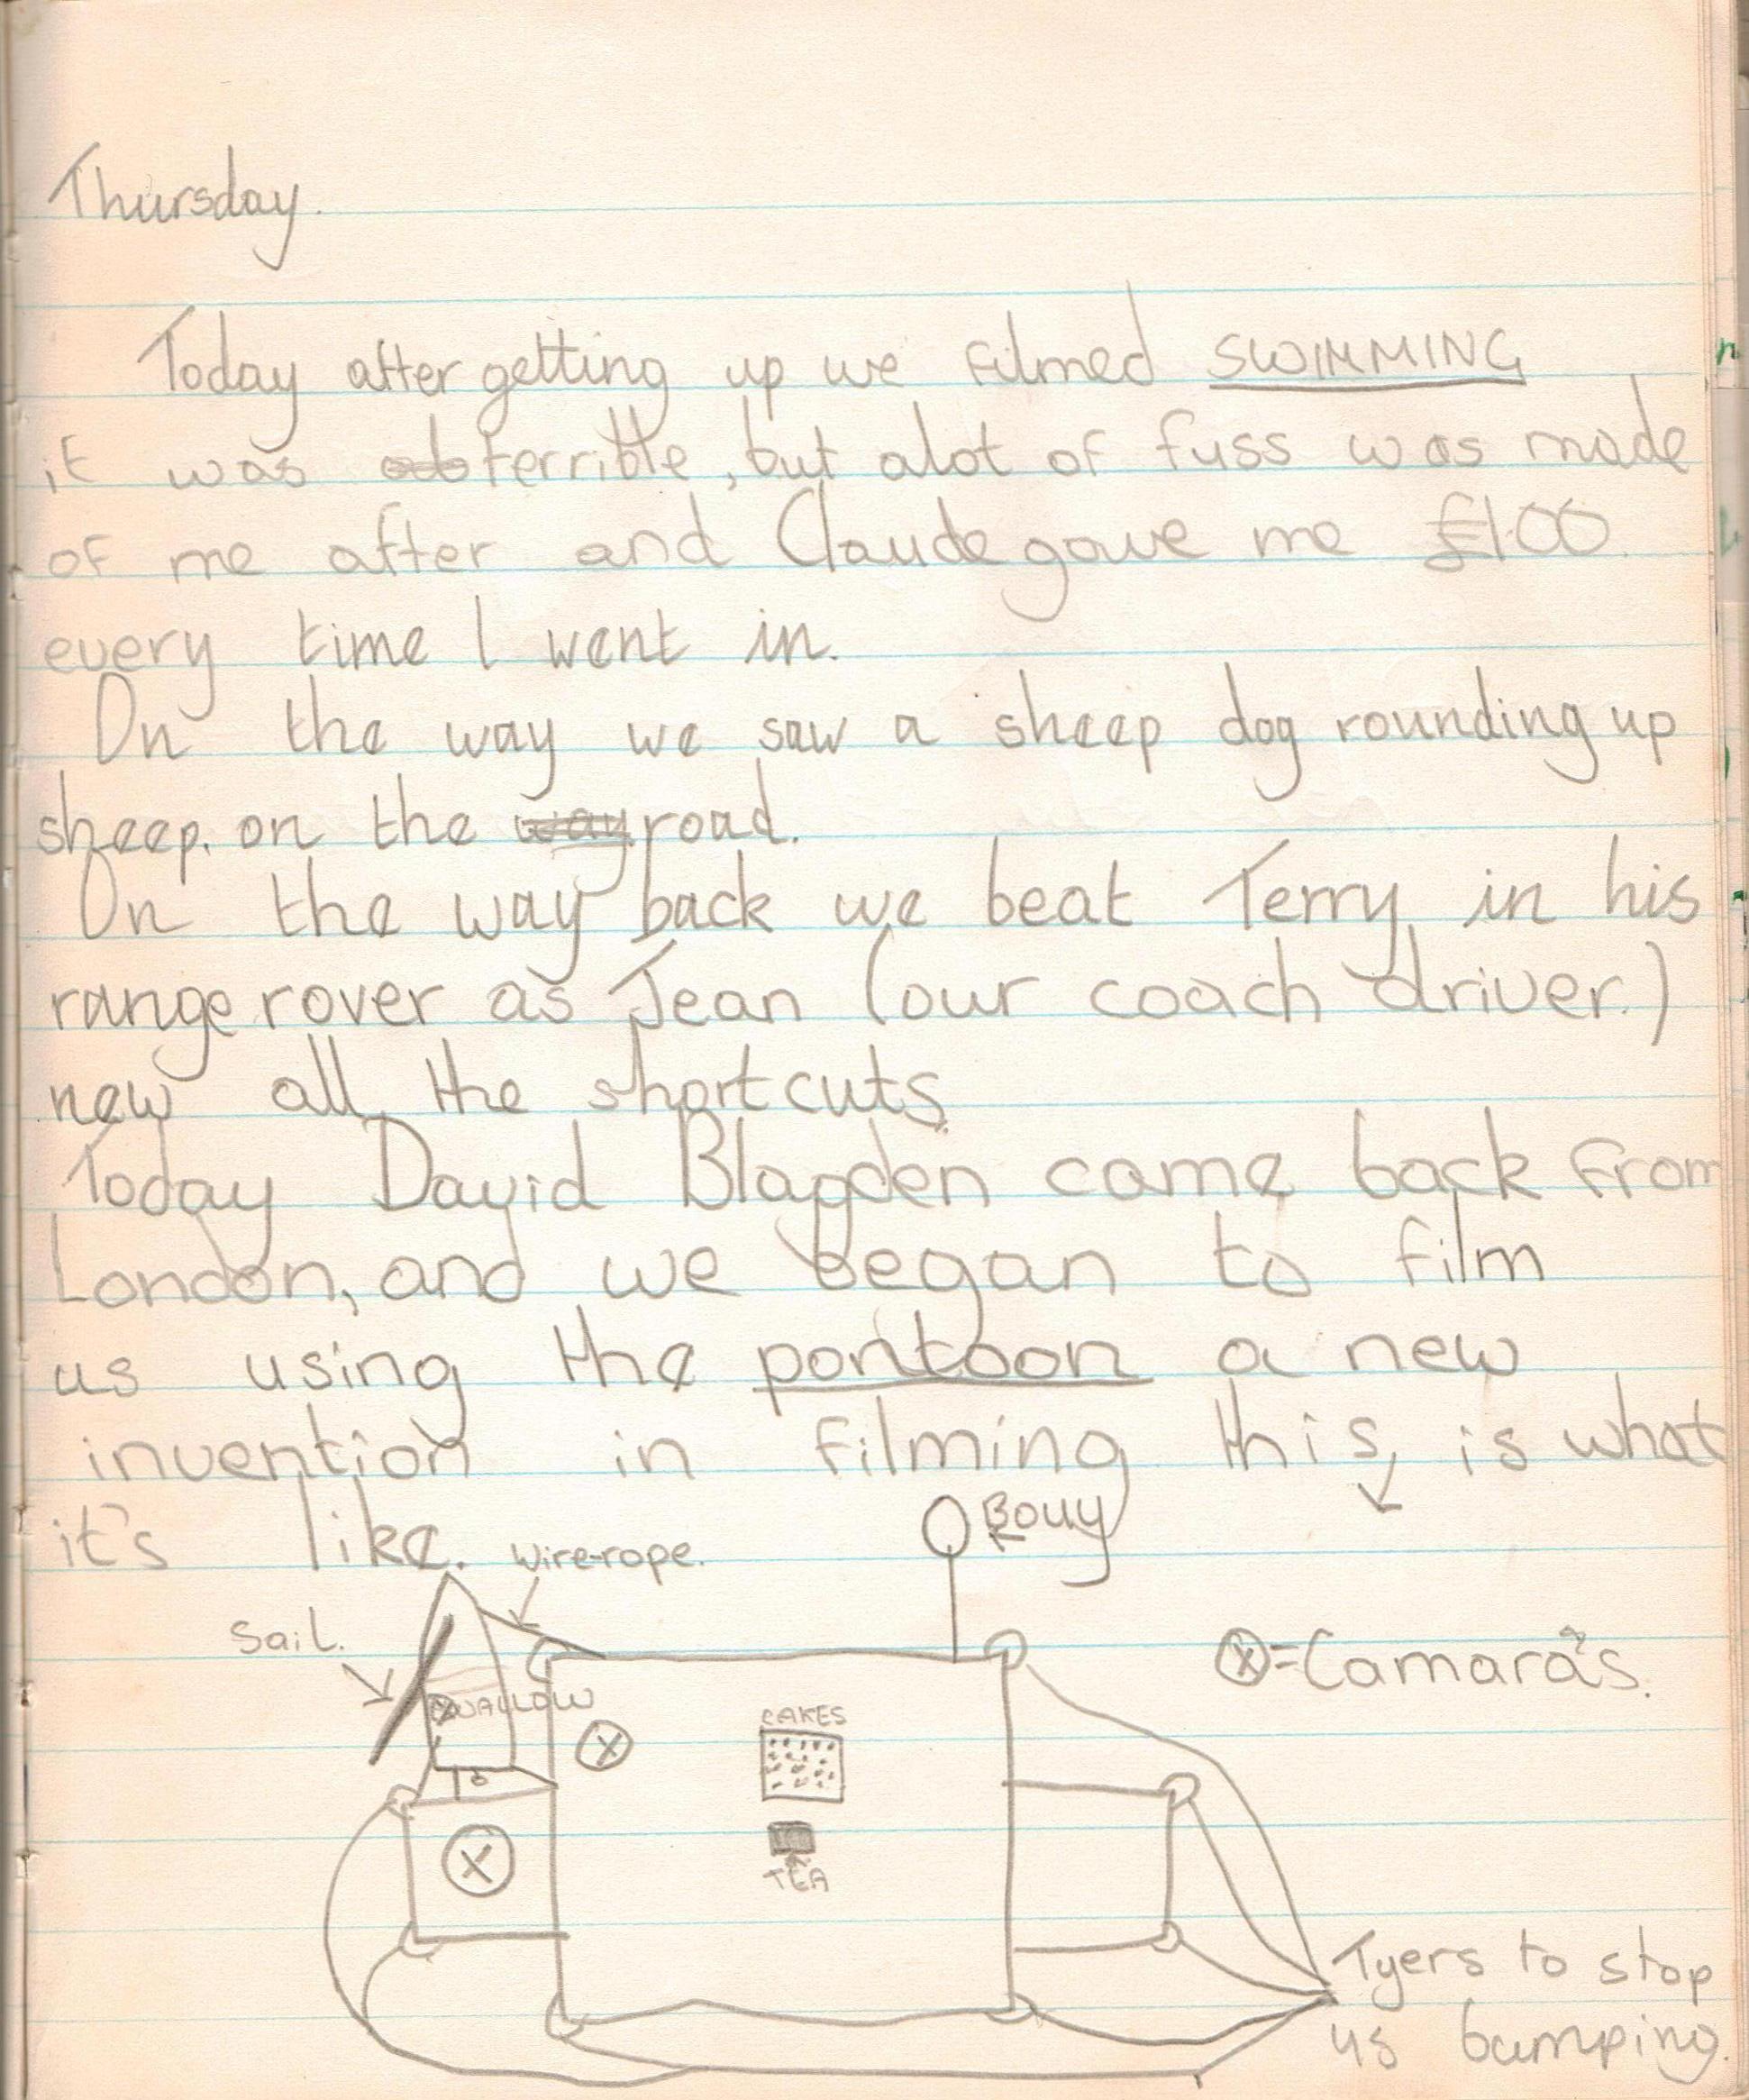 Thursday.
Today after getting up we filmed SWIMMING
it was terrible, but alot of fuss was made
of me after and Claude gave me £100
every time I went in.
On the way we saw a sheep dog rounding up
sheep. on the way road.
On the way back we beat Terry in his
range rover as Jean (our coach driver.)
new all the shortcuts.
Today David Blagden came back from
London, and we began to film
us using the pontoon a new
invention in filming this is what
it's like.
Bouy
Wire-rope.
Sail.
X = Camara's.
SWALLOW
X
CAKES
X
TEA
Tyers to stop
us bumping.